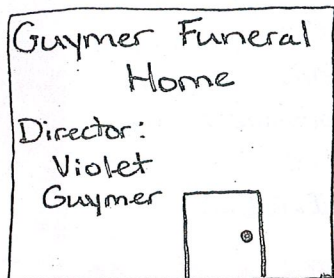 Guymer Funeral
Home
Director:
Violet
Guymer